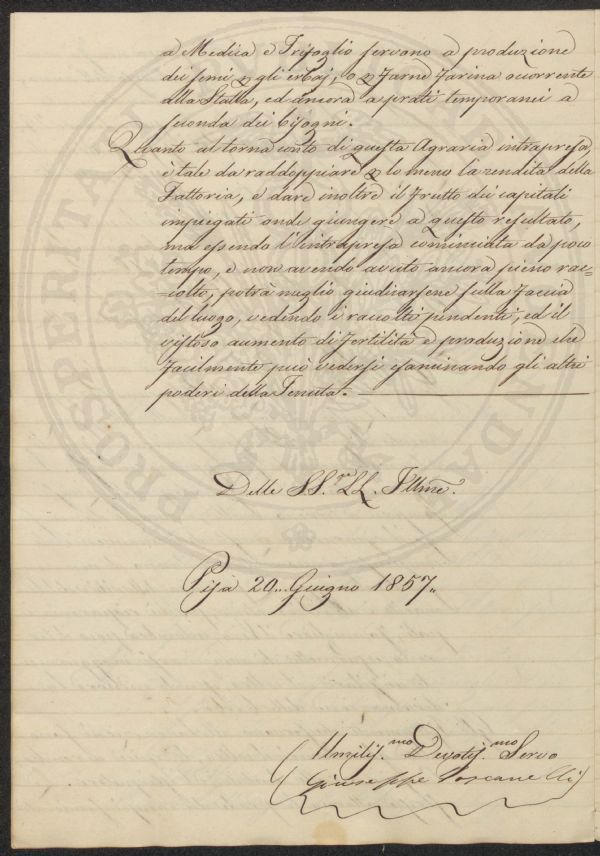 a Medica e Trifoglio servano a produzione
dei semi p gli erbaj, o p farne farina ocorrente
alla Stalla, ed ancora a prati temporanei a
seconda dei bisogni.
Quanto al torna conto di questa Agraria intrapresa,
è tale da raddoppiare p lo meno la rendita della
Fattoria, e dare inoltre il frutto dei capitali
impiegati onde giungere a questo resultato,
ma essendo l'intrapresa cominciata da poco
tempo, e non avendo avuto ancora pieno rac=
=colto, potrà meglio giudicarsene sulla faccia
del luogo, vedendo i raccolti pendenti, ed il
vistoso aumento di fertilità e produzione che
facilmente può vedersi esaminando gli altri
poderi della Tenuta.
Delle SS.re LL. Illme.
Pisa 20.. Giugno 1857„
Umiliss.mo Devotis.mo Servo
Giuseppe Toscanelli
PROSPERITAS